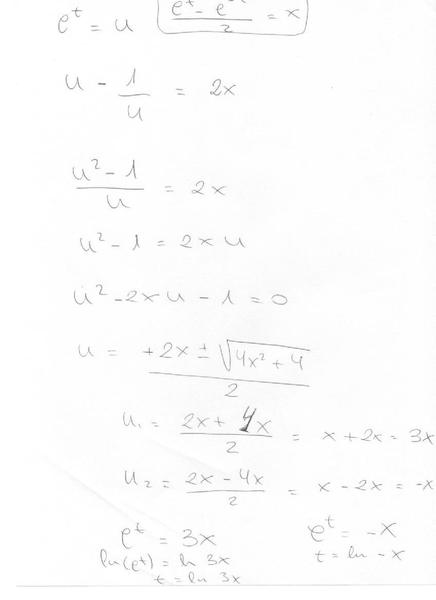 e^t = u   (e^t - e^-t)/2 = x
u - 1/u = 2x
(u² - 1)/u = 2x
u² - 1 = 2xu
u² - 2xu - 1 = 0
u = (+2x ± √(4x² + 4))/2
u₁ = (2x + 4x)/2 = x + 2x = 3x
u₂ = (2x - 4x)/2 = x - 2x = -x
e^t = 3x   e^t = -x
ln(e^t) = ln 3x   t = ln -x
t = ln 3x